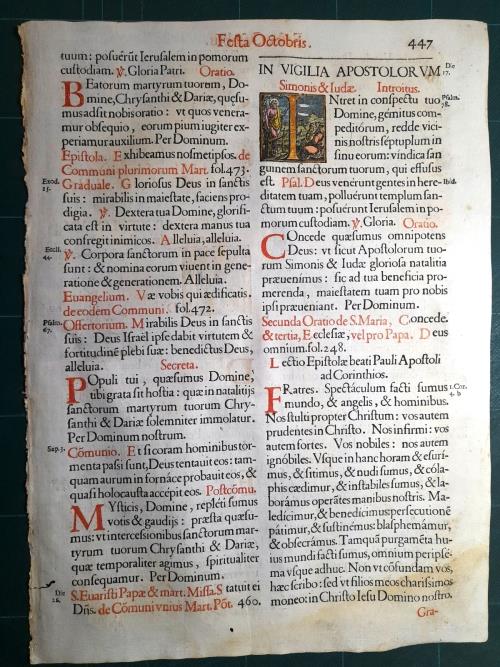 Festa Octobris. 447
tuum: posuerũt Ierusalem in pomorum
custodiam. ℣. Gloria Patri. Oratio.
BEatorum martyrum tuorum, Do-
mine, Chrysanthi & Dariæ, quęsu-
mus adsit nobis oratio: vt quos venera-
mur obsequio, eorum pium iugiter ex-
periamur auxilium. Per Dominum.
Epistola. Exhibeamus nosmetipsos. de
Communi plurimorum Mart. fol. 473.
Exod. 15.
Graduale. Gloriosus Deus in sanctis
suis: mirabilis in maiestate, faciens pro-
digia. ℣. Dextera tua Domine, glorifi-
cata est in virtute: dextera manus tua
confregit inimicos. Alleluia, alleluia.
Eccli. 44.
℣. Corpora sanctorum in pace sepulta
sunt: & nomina eorum viuent in gene-
ratione & generationem. Alleluia.
Euangelium. Væ vobis qui ædificatis.
de eodem Communi. fol. 472.
Psalm. 67.
Offertorium. Mirabilis Deus in sanctis
suis: Deus Israël ipse dabit virtutem &
fortitudinẽ plebi suæ: benedictus Deus,
alleluia. Secreta.
POpuli tui, quæsumus Domine,
tibi grata sit hostia: quæ in natalitijs
sanctorum martyrum tuorum Chry-
santhi & Dariæ solemniter immolatur.
Per Dominum nostrum.
Sap. 3.
Cõmunio. Et si coram hominibus tor-
menta passi sunt, Deus tentauit eos: tam-
quam aurum in fornáce probauit eos, &
quasi holocausta accépit eos. Postcõmu.
MYsticis, Domine, repleti sumus
votis & gaudijs: præsta quæsu-
mus: vt intercessionibus sanctorum mar-
tyrum tuorum Chrysanthi & Dariæ,
quæ temporaliter agimus, spiritualiter
consequamur. Per Dominum.
Die 26.
S. Euaristi Papæ & mart. Missa. Statuit ei
Dñs. de Cõmuni vnius Mart. Põt. 460.
IN VIGILIA APOSTOLORVM
Die 27.
Simonis & Iudæ. Introitus.
INtret in conspectu tuo,
Psalm. 78.
Domine, gemitus com-
peditórum, redde vici-
nis nostris séptuplum in
sinu eorum: vindica san
guinem sanctorum tuorum, qui effusus
est. Psal. Deus venérunt gentes in here-
Ibid.
ditatem tuam, polluérunt templum san-
ctum tuum: posuérunt Ierusalem in po-
morum custodiam. ℣. Gloria. Oratio.
COncede quæsumus omnipotens
Deus: vt sicut Apostolorum tuo-
rum Simonis & Iudæ gloriosa natalitia
præuenimus: sic ad tua beneficia pro-
merenda, maiestatem tuam pro nobis
ipsi præueniant. Per Dominum.
Secunda Oratio de S. Maria, Concede.
& tertia, Ecclesiæ, vel pro Papa. Deus
omnium. fol. 248.
Lectio Epistolæ beati Pauli Apostoli
ad Corinthios.
FRatres. Spectáculum facti sumus
1. Cor. 4. b
mundo, & angelis, & hominibus.
Nos stulti propter Christum: vos autem
prudentes in Christo. Nos infirmi: vos
autem fortes. Vos nobiles: nos autem
ignóbiles. Vsque in hanc horam & esuri-
mus, & sitimus, & nudi sumus, & cóla-
phis cædimur, & instabiles sumus, & la-
borámus operátes manibus nostris. Ma-
ledicimur, & benedicimus: persecutionẽ
pátimur, & sustinémus: blasphemámur,
& obsecrámus. Tamquã purgaméta hu-
ius mundi facti sumus, omnium peripsé-
ma vsque adhuc. Non vt cõfundam vos,
hæc scribo: sed vt filios meos charissimos
moneo: in Christo Iesu Domino nostro.
Gra-